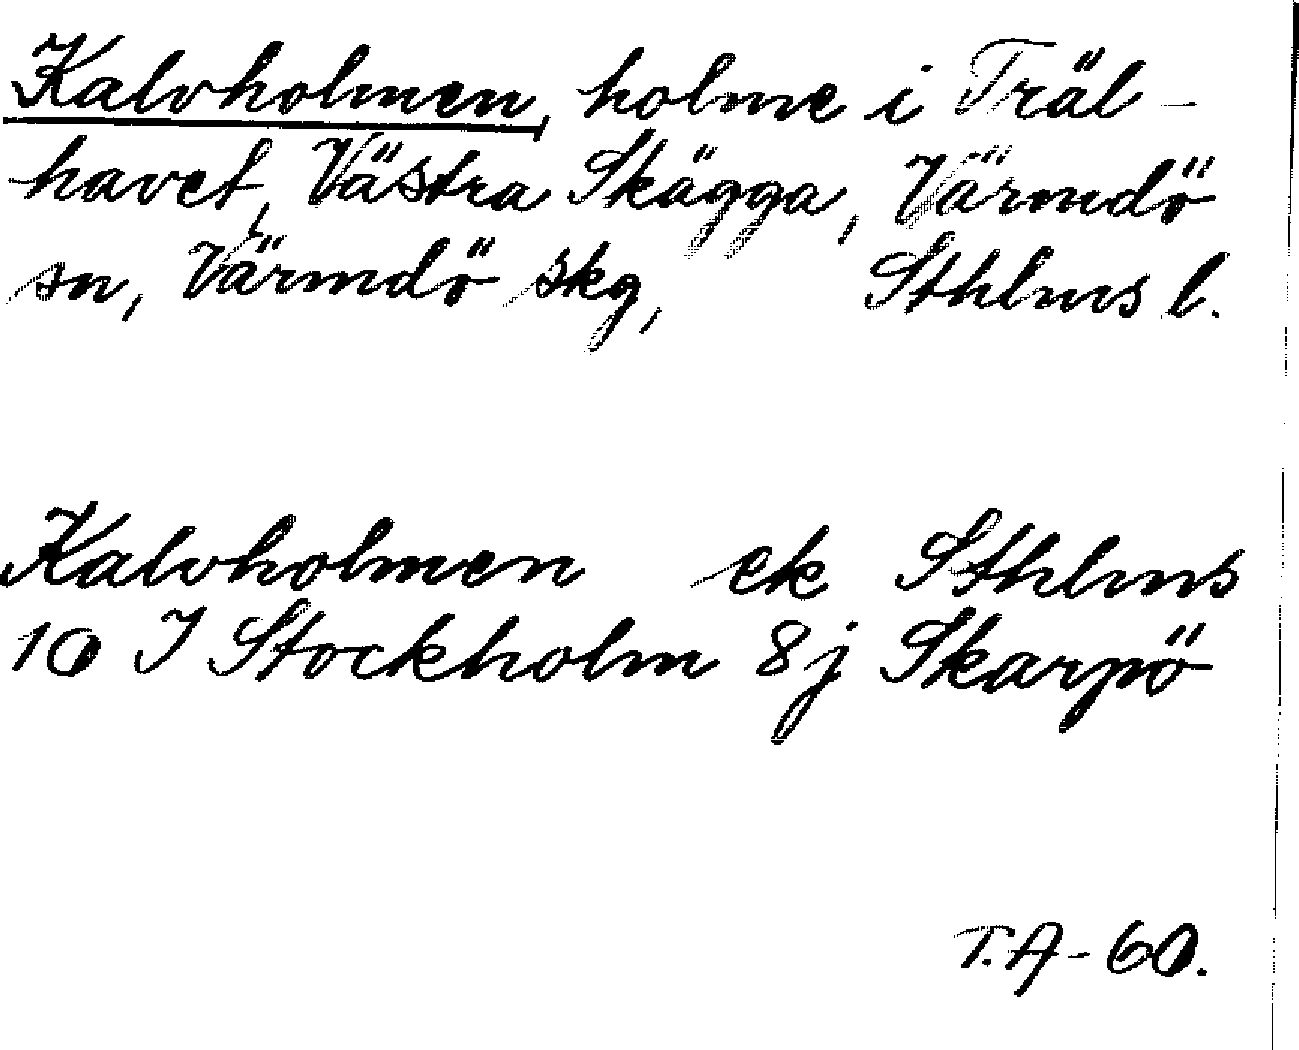 Kalvholmen, holme i Träl-
havet, Västra Skägga, Värmdö
sn, Värmdö skg, Sthlms l.
Kalvholmen ek Sthlms
10 I Stockholm 8j Skarpö
T.A-60.